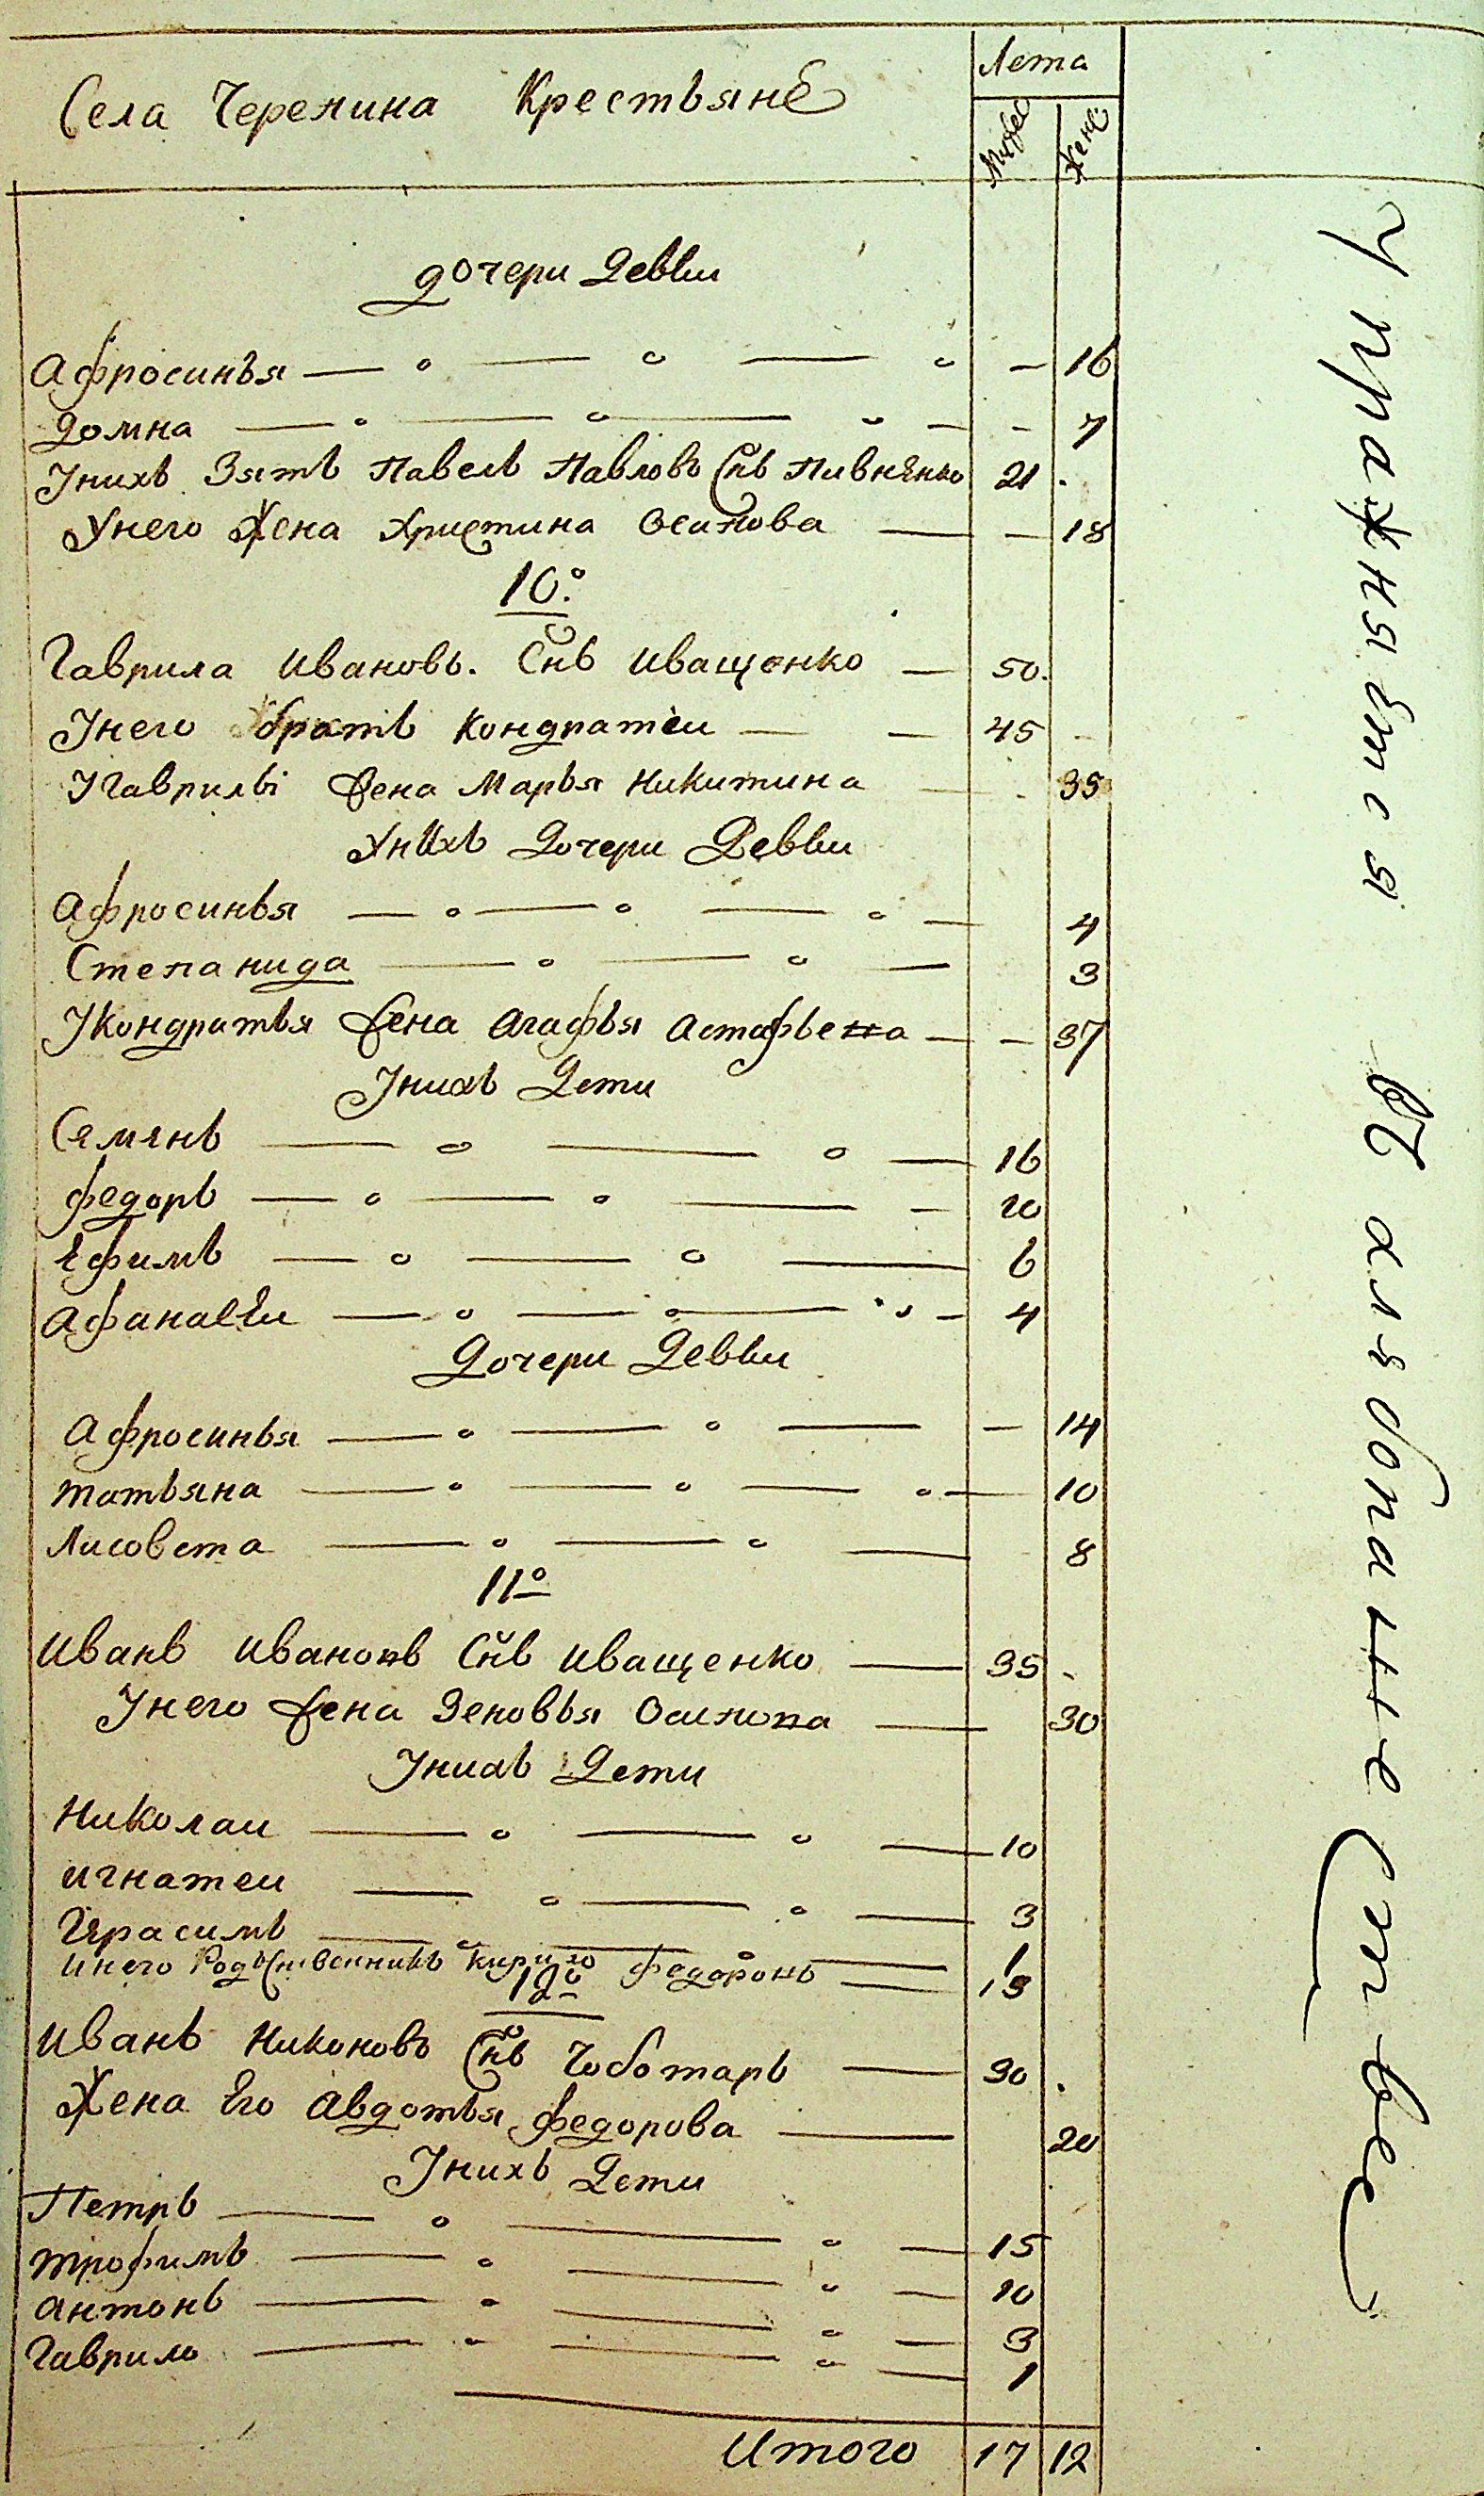 Села Черепина Крестьяне
Лета
Мужес
Женс
дочери Девки
Афросинья 16
Домна 7
Униxъ Зять Павелъ Павловъ Снъ Пивнянко 21
Унего Жена Христина Осипова 18
10.
Гаврила Ивановъ. Снъ Иващенко 50.
Унего братъ Кондратеи 45
УГаврилы Жена Марья Никитина 35
Унихъ Дочери Девки
Афросинья 4
Степанида 3
УКондратья Жена Агафья Астафьева 37
Унихъ Дети
Семенъ 16
Федоръ 10
Ефимъ 6
Афанасеи 4
Дочери Девки
Афросинья 14
Татьяна 10
Лисовета 8
11о
Иванъ Ивановъ Снъ Иващенко 35
Унего Жена Зеновья Осипова 30
Унихъ Дети
Николаи 10
Игнатеи 3
Герасимъ 1
Унего Родственникъ Кирило Федоровъ 13
12о
Иванъ Никоновъ Снъ Чоботарь 30
Жена Его Авдотья Федорова 20
Унихъ Дети
Петръ 15
Трофимъ 10
Антонъ 3
Гаврило 1
Итого 17 12
Упражняется въ хлебопашестве